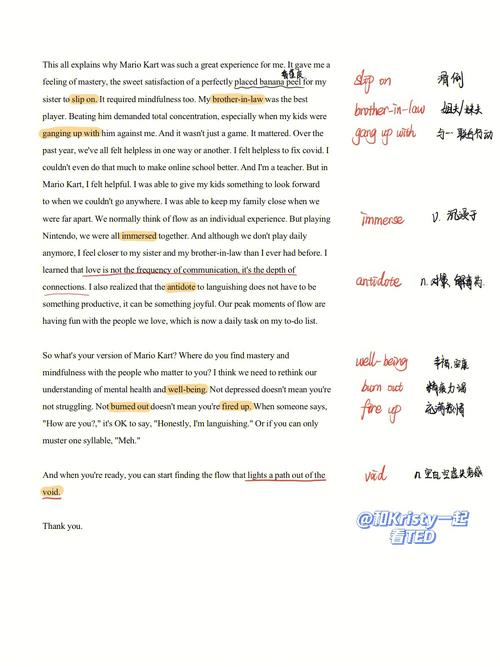 This all explains why Mario Kart was such a great experience for me. It gave me a
香蕉皮
feeling of mastery, the sweet satisfaction of a perfectly placed banana peel for my
sister to slip on. It required mindfulness too. My brother-in-law was the best
player. Beating him demanded total concentration, especially when my kids were
ganging up with him against me. And it wasn't just a game. It mattered. Over the
past year, we've all felt helpless in one way or another. I felt helpless to fix covid. I
couldn't even do that much to make online school better. And I'm a teacher. But in
Mario Kart, I felt helpful. I was able to give my kids something to look forward
to when we couldn't go anywhere. I was able to keep my family close when we
were far apart. We normally think of flow as an individual experience. But playing
Nintendo, we were all immersed together. And although we don't play daily
anymore, I feel closer to my sister and my brother-in-law than I ever had before. I
learned that love is not the frequency of communication, it's the depth of
connections. I also realized that the antidote to languishing does not have to be
something productive, it can be something joyful. Our peak moments of flow are
having fun with the people we love, which is now a daily task on my to-do list.
So what's your version of Mario Kart? Where do you find mastery and
mindfulness with the people who matter to you? I think we need to rethink our
understanding of mental health and well-being. Not depressed doesn't mean you're
not struggling. Not burned out doesn't mean you're fired up. When someone says,
"How are you?," it's OK to say, "Honestly, I'm languishing." Or if you can only
muster one syllable, "Meh."
And when you're ready, you can start finding the flow that lights a path out of the
void.
Thank you.
slip on 滑倒
brother-in-law 姐夫/妹夫
gang up with 与一起行动
immerse v. 沉浸于
antidote n.
well-being 幸福,安康
burn out 精疲力竭
fire up 充满激情
void n.
@和Kristy一起
看TED